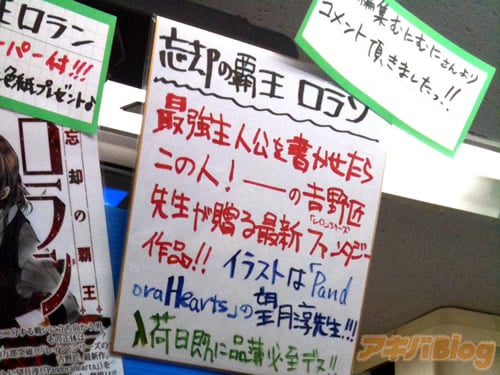 王ロラン
ーパー付!!!
色紙プレゼント♪
編集むにむにさんより
コメント頂きましたっ!!
忘却の覇王 ロラン
最強主人公を書かせたら
この人！――の吉野匠
「レイン」シリーズ
先生が贈る最新ファンタジー
作品!! イラストは「Pand
oraHearts」の望月淳先生!!!
入荷日既に品薄必至デス!!
忘却の覇王
ロラン
アキバBlog